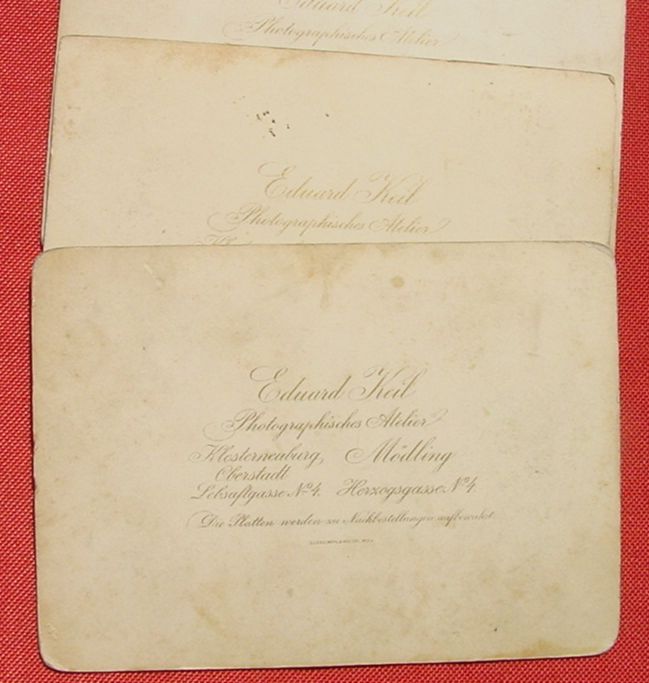 Eduard Keil
Photographisches Atelier
Eduard Keil
Photographisches Atelier
Eduard Keil
Photographisches Atelier
Klosterneuburg, Mödling
Oberstadt
Lebsaftgasse No 4. Herzogsgasse No 4
Die Platten werden zu Nachbestellungen aufbewahrt.